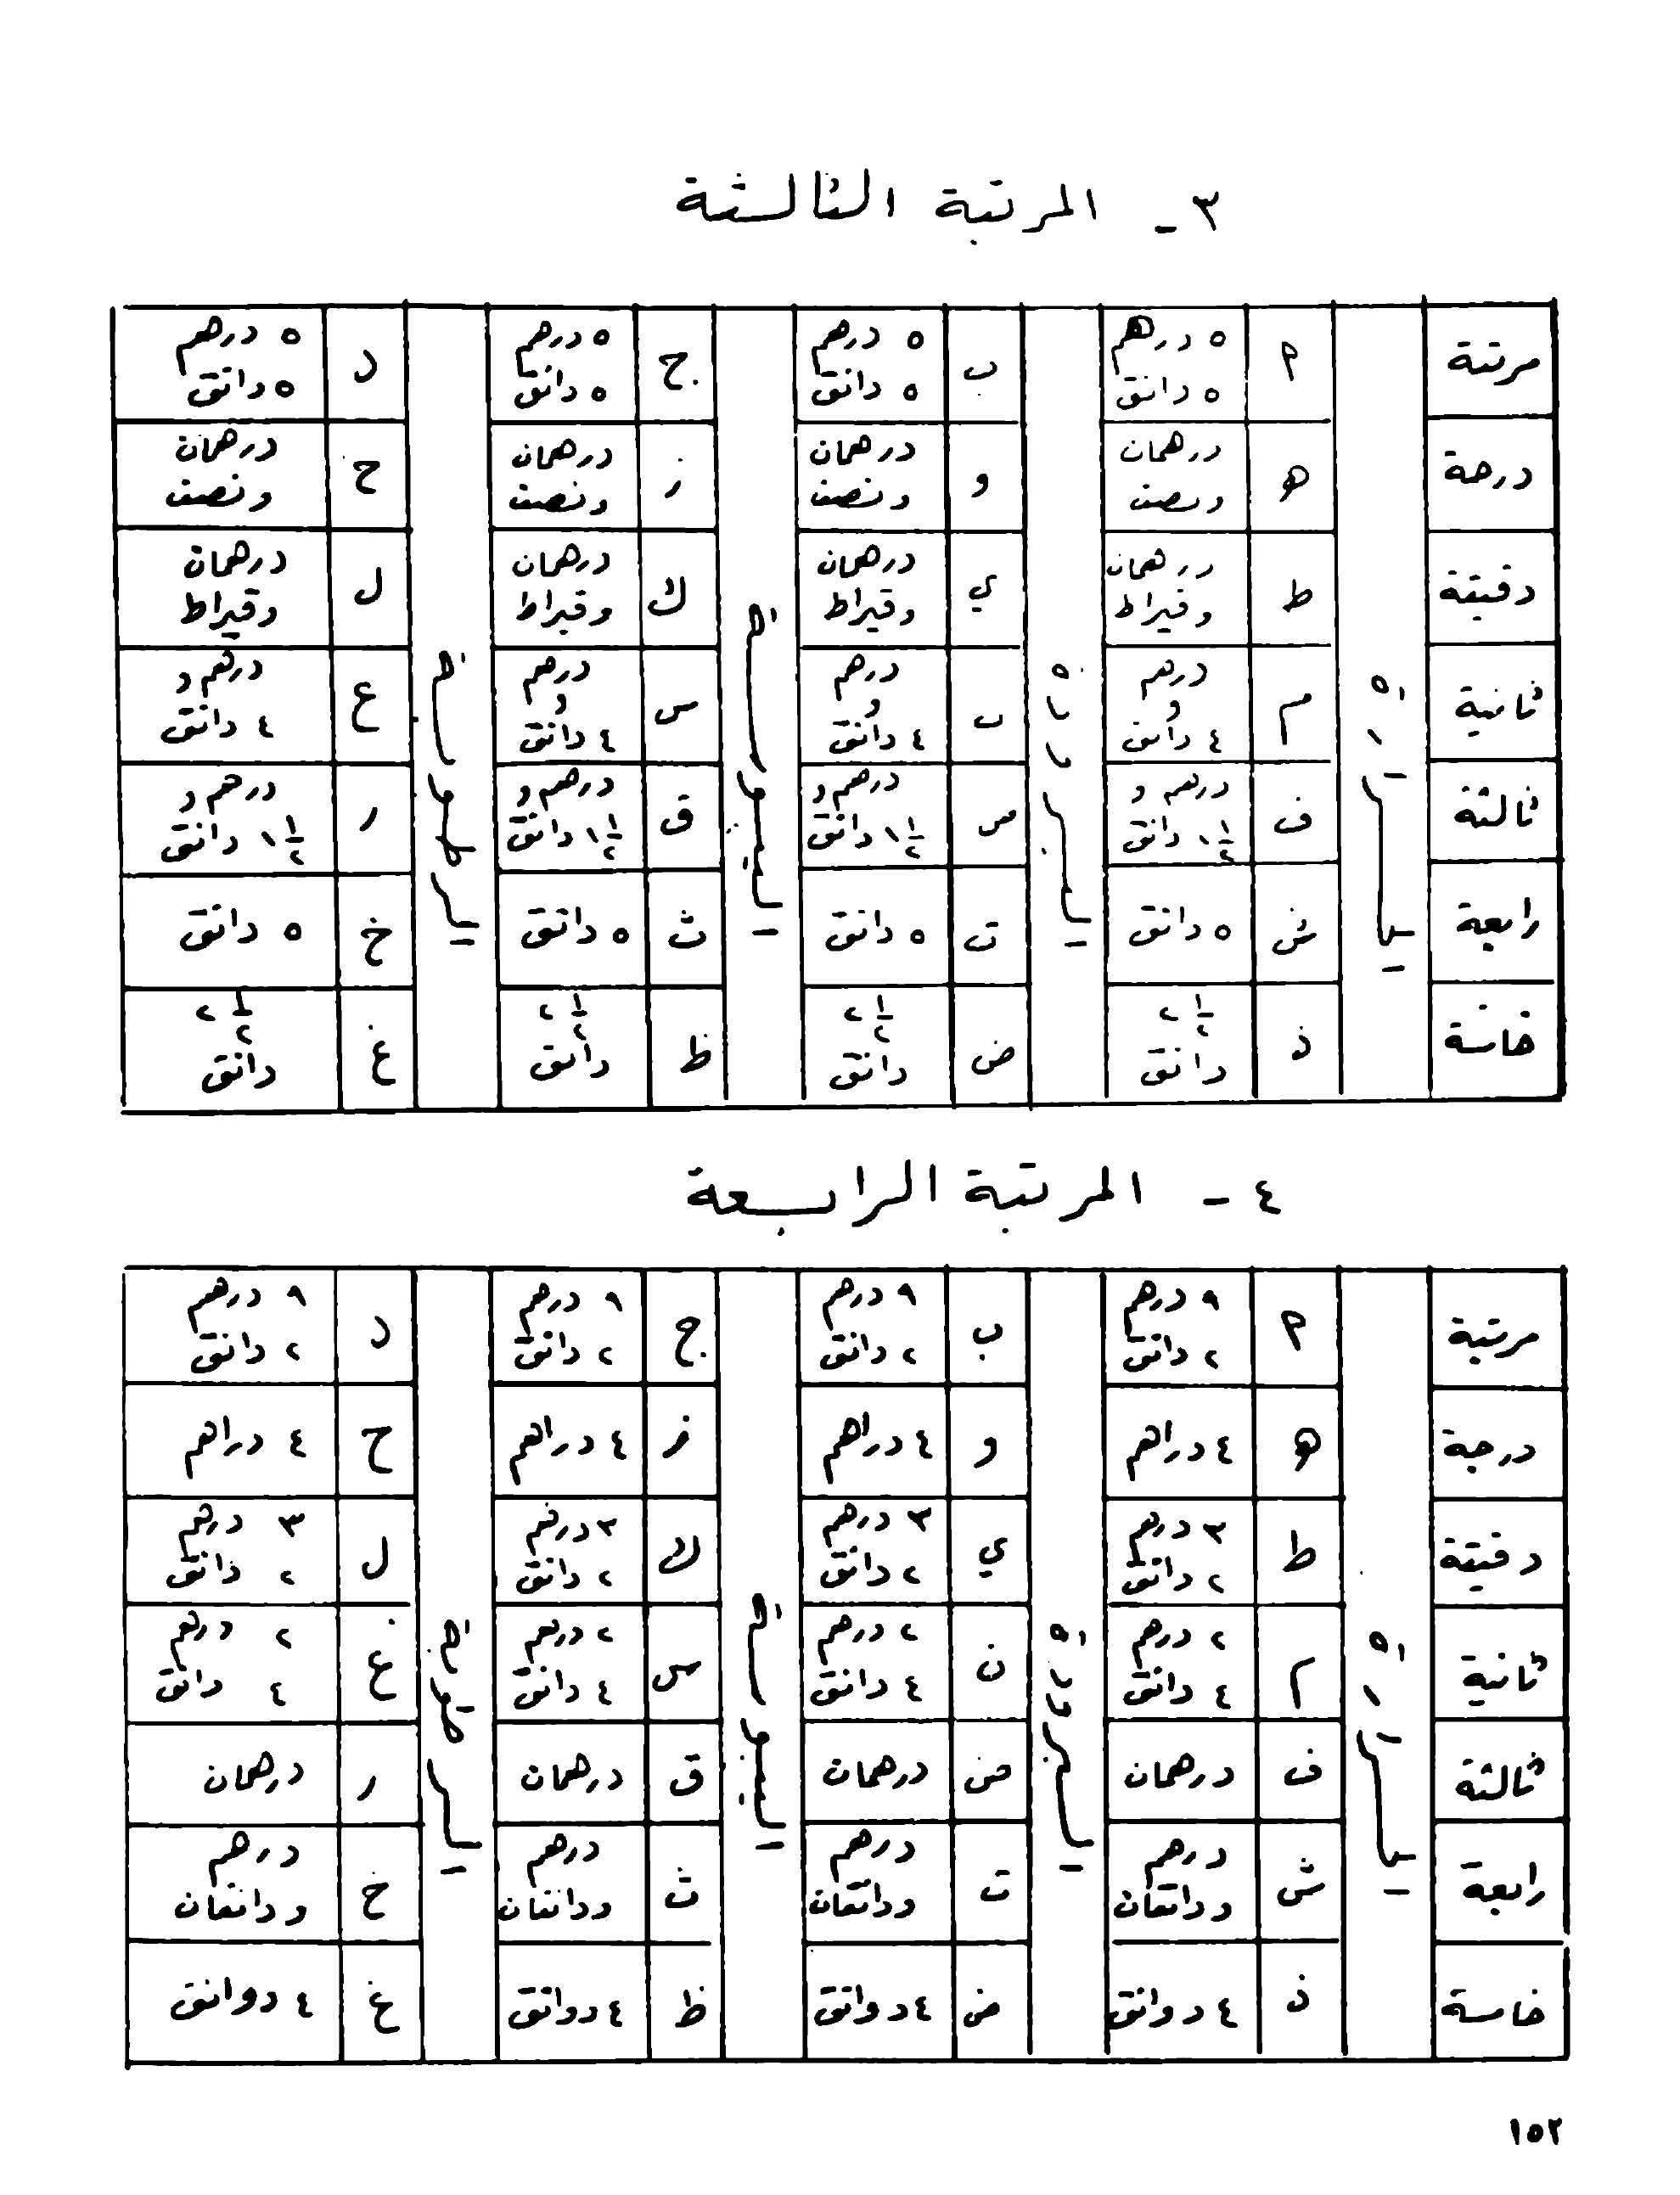 ٣ - المرتبة الثالثة
مرتبة | الحرارة | ا | ٥ درهم ٥ دانق | البرودة | ب | ٥ درهم ٥ دانق | اليبوسة | ج | ٥ درهم ٥ دانق | الرطوبة | د | ٥ درهم ٥ دانق
درجة | ه | درهمان ونصف | و | درهمان ونصف | ز | درهمان ونصف | ح | درهمان ونصف
دقيقة | ط | درهمان وقيراط | ي | درهمان وقيراط | ك | درهمان وقيراط | ل | درهمان وقيراط
ثانية | م | درهم و ٤ دانق | ن | درهم و ٤ دانق | س | درهم و ٤ دانق | ع | درهم و ٤ دانق
ثالثة | ف | درهم و ١ ١/٢ دانق | ص | درهم و ١ ١/٢ دانق | ق | درهم و ١ ١/٢ دانق | ر | درهم و ١ ١/٢ دانق
رابعة | ش | ٥ دانق | ت | ٥ دانق | ث | ٥ دانق | خ | ٥ دانق
خامسة | ذ | ٢ ١/٢ دانق | ض | ٢ ١/٢ دانق | ظ | ٢ ١/٢ دانق | غ | ٢ ١/٢ دانق
٤ - المرتبة الرابعة
مرتبة | الحرارة | ا | ٩ درهم ٢ دانق | البرودة | ب | ٩ درهم ٢ دانق | اليبوسة | ج | ٩ درهم ٢ دانق | الرطوبة | د | ٩ درهم ٢ دانق
درجة | ه | ٤ دراهم | و | ٤ دراهم | ز | ٤ دراهم | ح | ٤ دراهم
دقيقة | ط | ٣ درهم ٢ دانق | ي | ٣ درهم ٢ دانق | ك | ٣ درهم ٢ دانق | ل | ٣ درهم ٢ دانق
ثانية | م | ٢ درهم ٤ دانق | ن | ٢ درهم ٤ دانق | س | ٢ درهم ٤ دانق | غ | ٢ درهم ٤ دانق
ثالثة | ف | درهمان | ض | درهمان | ق | درهمان | ر | درهمان
رابعة | ش | درهم ودانقان | ت | درهم ودانقان | ث | درهم ودانقان | خ | درهم ودانقان
خامسة | ذ | ٤ دوانق | ض | ٤ دوانق | ظ | ٤ دوانق | غ | ٤ دوانق
١٥٢